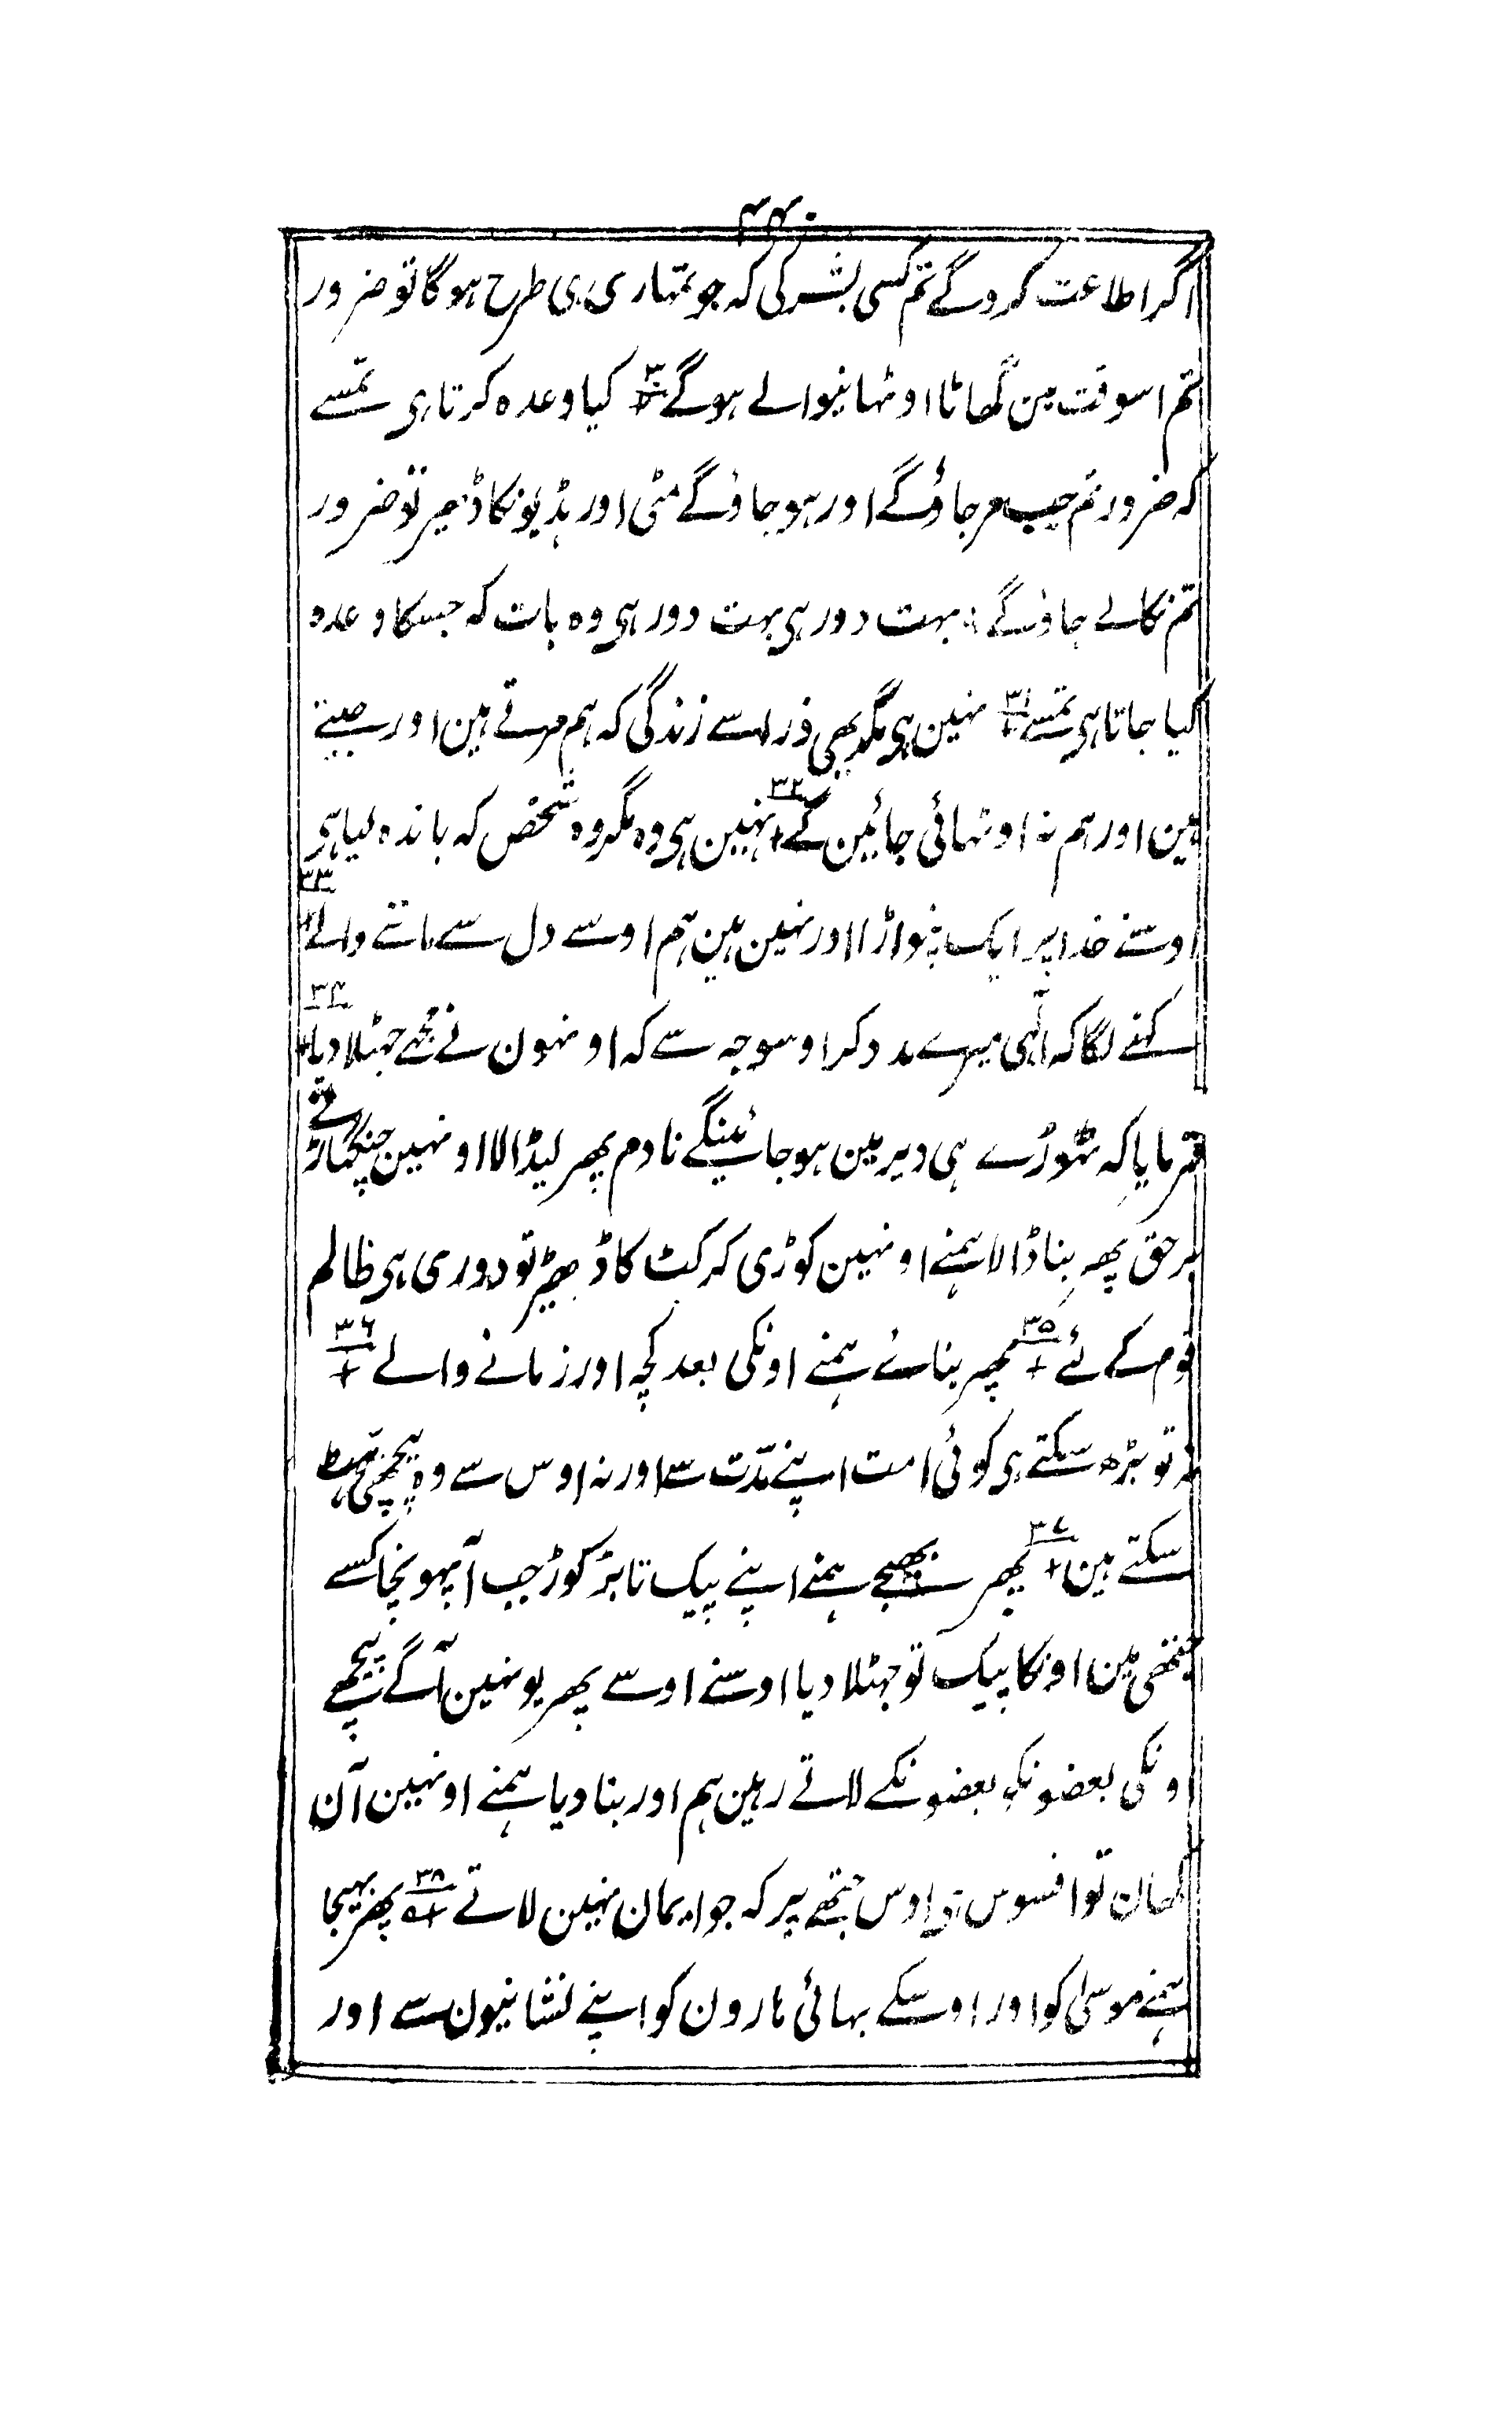 ۴۴۰
اگر اطاعت کروگے تم کسی بشر کی کہ جو تمہاری ہی طرح ہوگا تو ضرور
تم اسوقت مین گھاٹا اوٹہانیوالے ہوگے ۳۰ کیا وعدہ کرتا ہی تمسے
کہ ضرور تم جب مرجاؤگے اور ہوجاؤگے مٹی اور ہڈیونکا ڈھیر تو ضرور
تم نکالے جاؤگے بہت دور ہی بہت دور ہی وہ بات کہ جسکا وعدہ
کیا جاتا ہی تمسے ۳۱ نہین ہی مگر یہی ذرا سے زندگی کہ ہم مرتے ہین اور جیتے
ہین اور ہم نہ اوٹہائی جائین گے ۳۲ نہین ہی وہ مگر وہ شخص کہ باندہ لیا ہی
اوسنے خدا پر ایک بنواڑا اور نہین ہین ہم اوسے دل سے ماننے والے ۳۳
کہنے لگا کہ الٰہی میرے مدد کر اوسوجہ سے کہ اونہون نے مجھے جہٹلا دیا ۳۴
فرمایا کہ تہوڑے ہی دیر مین ہوجائینگے نادم پھر لیڈالا اونہین چنگہاڑنے
برحق پھر بنا ڈالا ہمنے اونہین کوڑی کرکٹ کا ڈھیڑ تو دوری ہی ظالم
قوم کے لئے ۳۵ پھر بنائے ہمنے اونکی بعد کچہ اور زمانے والے ۳۶
نہ تو بڑھ سکتے ہی کوئی امت اپنے مدّت سے اور نہ اوس سے وہ پیچھی ہٹ
سکتے ہین ۳۷ پھر بھیجے ہمنے اپنے پیک تابڑ کوڑ جب آپہونچا کسے
جتھی مین اونکا پیک تو جہٹلا دیا اوسنے اوسے پھر یونہین آگے پیچھے
اونکی بعضونکے بعضونکے لاتے رہین ہم اور بنا دیا ہمنے اونہین آن
کھان تو افسوس ہی اوس جتھے پر کہ جو ایمان نہین لاتے ۳۸ پھر بہیجا
ہمنے موسیٰ کو اور اوسکے بہائی ہارون کو اپنے نشانیون سے اور